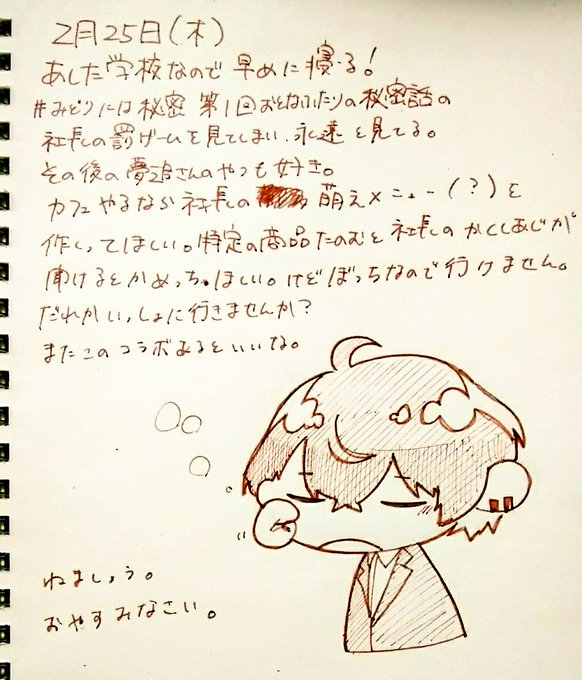 2月25日(木)
あした学校なので早めに寝る!
#みどりには秘密 第1回おとなふたりの秘密話の
社長の罰ゲームを見てしまい、永遠と見てる。
その後の夢追さんのやつも好き。
カフェやるなら社長の 萌えメニュー(?)を
作ってほしい。特定の商品たのむと社長のかくしあじが
聞けるとかめっちゃほしい。けどぼっちなので行けません。
だれかいっしょに行きませんか?
またこのコラボあるといいな。
ねましょう。
おやすみなさい。